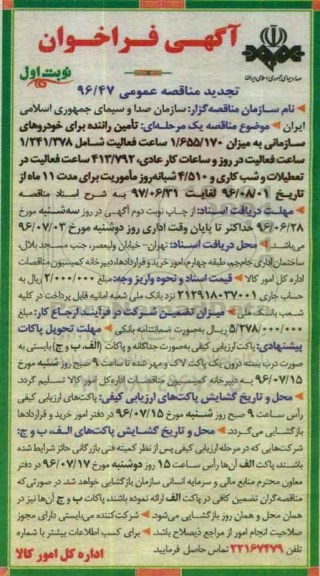 آگهی فراخوان
صدا و سیمای جمهوری اسلامی ایران
نوبت اول
تجدید مناقصه عمومی ۹۶/۴۷
◄ نام سازمان مناقصه‌گزار: سازمان صدا و سیمای جمهوری اسلامی
ایران ◄ موضوع مناقصه یک مرحله‌ای: تأمین راننده برای خودروهای
سازمانی به میزان ۱/۶۵۵/۱۷۰ ساعت فعالیت شامل ۱/۲۴۱/۳۷۸
ساعت فعالیت در روز و ساعات کار عادی، ۴۱۳/۷۹۲ ساعت فعالیت در
تعطیلات و شب کاری و ۴/۵۱۰ شبانه‌روز مأموریت برای مدت ۱۱ ماه از
تاریخ ۹۶/۰۸/۰۱ لغایت ۹۷/۰۶/۳۱ به شرح اسناد مناقصه
◄ مهلت دریافت اسناد: از چاپ نوبت دوم آگهی در روز سه‌شنبه مورخ
۹۶/۰۶/۲۸ حداکثر تا پایان وقت اداری روز دوشنبه مورخ ۹۶/۰۷/۰۳
می‌باشد. ◄ محل دریافت اسناد: تهران- خیابان ولیعصر، جنب مسجد بلال،
ساختمان اداری جام‌جم، طبقه چهارم، امور خرید و قراردادها، دبیرخانه کمیسیون مناقصات
اداره کل امور کالا ◄ قیمت اسناد و نحوه واریز وجه: مبلغ ۲/۰۰۰/۰۰۰ ریال به
حساب جاری ۲۱۲۹۱۸۰۳۷۰۰۱ نزد بانک ملی شعبه امانیه قابل پرداخت در کلیه
شعب بانک ملی ◄ میزان تضمین شرکت در فرآیند ارجاع کار: مبلغ
۵/۲۷۸/۰۰۰/۰۰۰ ریال به‌صورت ضمانتنامه بانکی ◄ مهلت تحویل پاکات
پیشنهادی: پاکت ارزیابی کیفی به‌صورت جداگانه و پاکات (الف، ب و ج) بایستی به
صورت درب بسته درون یک پاکت لاک و مهر شده تا ساعت ۹ صبح روز شنبه مورخ
۹۶/۰۷/۱۵ به دبیرخانه کمیسیون مناقصات اداره کل امور کالا تسلیم گردد.
◄ محل و تاریخ گشایش پاکت‌های ارزیابی کیفی: پاکت‌های ارزیابی کیفی
رأس ساعت ۹ صبح روز شنبه مورخ ۹۶/۰۷/۱۵ در دفتر امور خرید و قراردادها
بازگشایی می‌گردد. ◄ محل و تاریخ گشایش پاکت‌های الف، ب و ج:
شرکت‌هایی که در مرحله ارزیابی کیفی پس از نظر کمیته فنی بازرگانی حائز شرایط شده
باشند، پاکت الف آن‌ها رأس ساعت ۱۵ روز دوشنبه مورخ ۹۶/۰۷/۱۷ در دفتر
معاون محترم منابع مالی و سرمایه انسانی سازمان بازگشایی خواهد شد. در صورتی که
مناقصه‌گران تضمین کافی در پاکت الف ارائه نموده باشند پاکات ب و ج آن‌ها نیز در
همان محل و همان روز بازگشایی می‌شود. ◄ شرکت‌کننده می‌بایستی دارای مجوز
صلاحیت انجام امور از مراجع ذیصلاح باشد. ◄ برای کسب اطلاعات بیشتر با شماره
تلفن ۲۲۱۶۷۴۷۹ تماس حاصل فرمایید.
اداره کل امور کالا